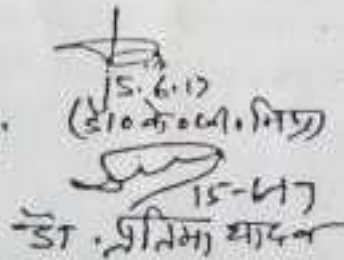 15.6.17
(डॉ० के० सी० मिश्र)
15-6-17
डॉ. प्रतिमा यादव